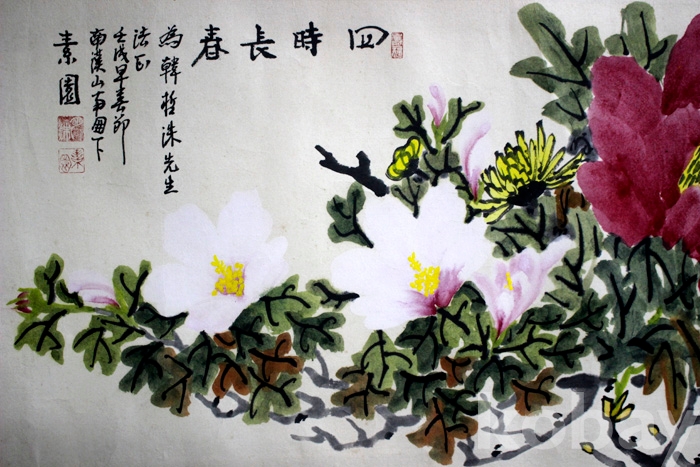 四時長春
為韓哲洙先生
法正
壬戌早春節
南漢山市畵下
素園
kobay